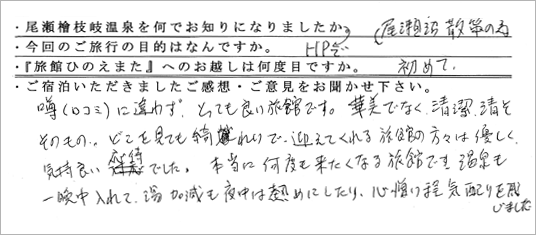 ・尾瀬檜枝岐温泉を何でお知りになりましたか。
HPで
・今回のご旅行の目的はなんですか。
尾瀬沼散策の為
・『旅館ひのえまた』へのお越しは何度目ですか。 初めて。
・ご宿泊いただきましたご感想・ご意見をお聞かせ下さい。
噂(口コミ)に違わず、とっても良い旅館です。華美でなく、清潔、清そ
そのもの。どこを見ても綺麗で、迎えてくれる旅館の方々は優しく
気持良い でした。本当に何度も来たくなる旅館です。温泉も
一晩中入れて、湯加減も夜中は熱めにしたり、心憎い程気配りを感
じました